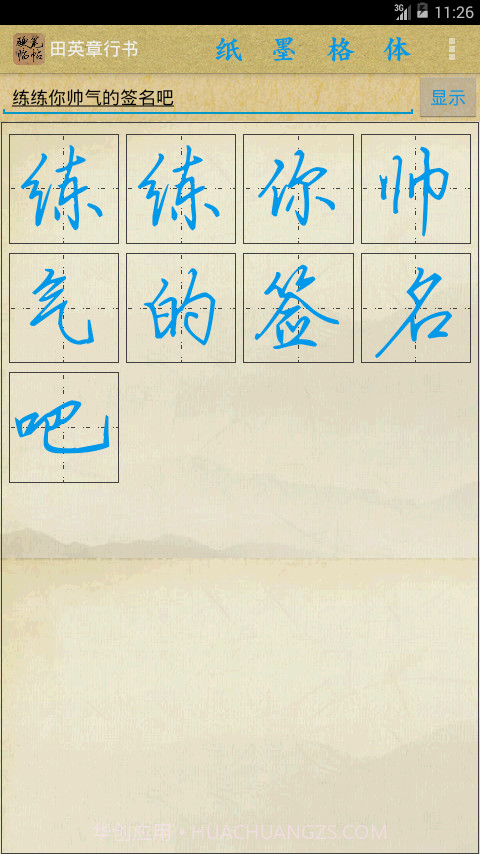 3G 11:26
硬笔临帖 田英章行书 纸 墨 格 体
练练你帅气的签名吧 显示
练 练 你 帅
气 的 签 名
吧
华创应用 · HUACHUANGZS.COM